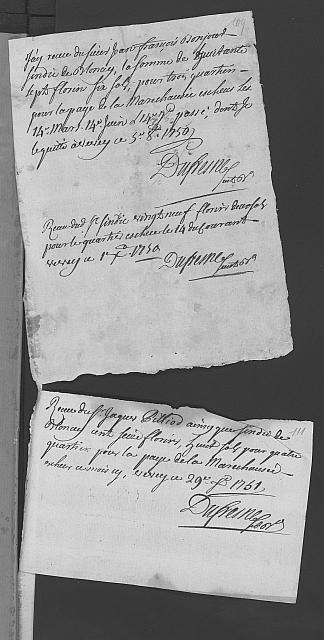 109
J'ay receu du sieur Jean françois Bonjour
sindic de Blonay, la somme de huitante
sept florin six sols, pour trois quartier
pour la paye de la Marechaussée escheus les
14e Mars, 14e Juin & 14e 7bre passé, dont je
le quitte à vevey ce 5e 8bre 1750
Dufresne
Receu dud Sr sindic vingt neuf florin deux sols
pour le quartier escheu le 14 du courant
vevey ce Xbre 1750
Dufresne
111
Receu du Sr Jaques ainsy que sindic de
Blonay cent seize florins, huit sols pour quatre
quartier pour la paye de la Marechaussée
escheus ce vevey ce 29e Xbre 1751
Dufresne